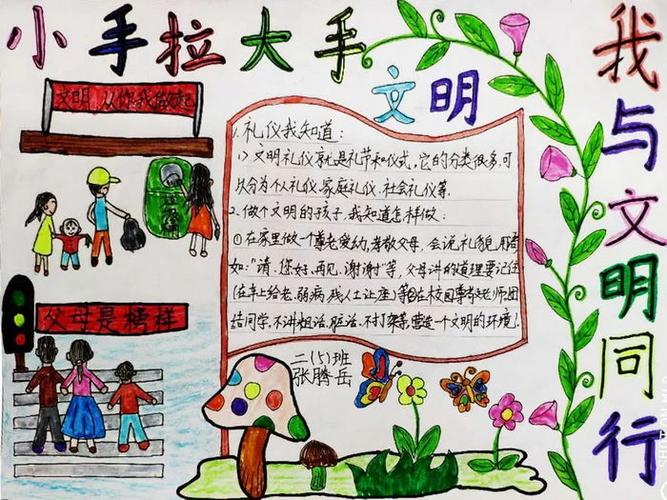 小手拉大手
我与文明同行
文明
文明 从你我做起
父母是榜样
1.礼仪我知道:
1> 文明礼仪就是礼节和仪式,它的分类很多,可
以分为个人礼仪.家庭礼仪.社会礼仪等.
2.做个文明的孩子,我知道怎样做:
①在家里做一个尊老爱幼,孝敬父母,会说礼貌用语
如:"请.您好.再见.谢谢"等,父母讲的道理要记住
(在车上给老.弱病.残人士让座)等②在校园尊敬老师.团
结同学.不讲粗话.脏话.不打架等,营造一个文明的环境!
二(5)班
张腾岳